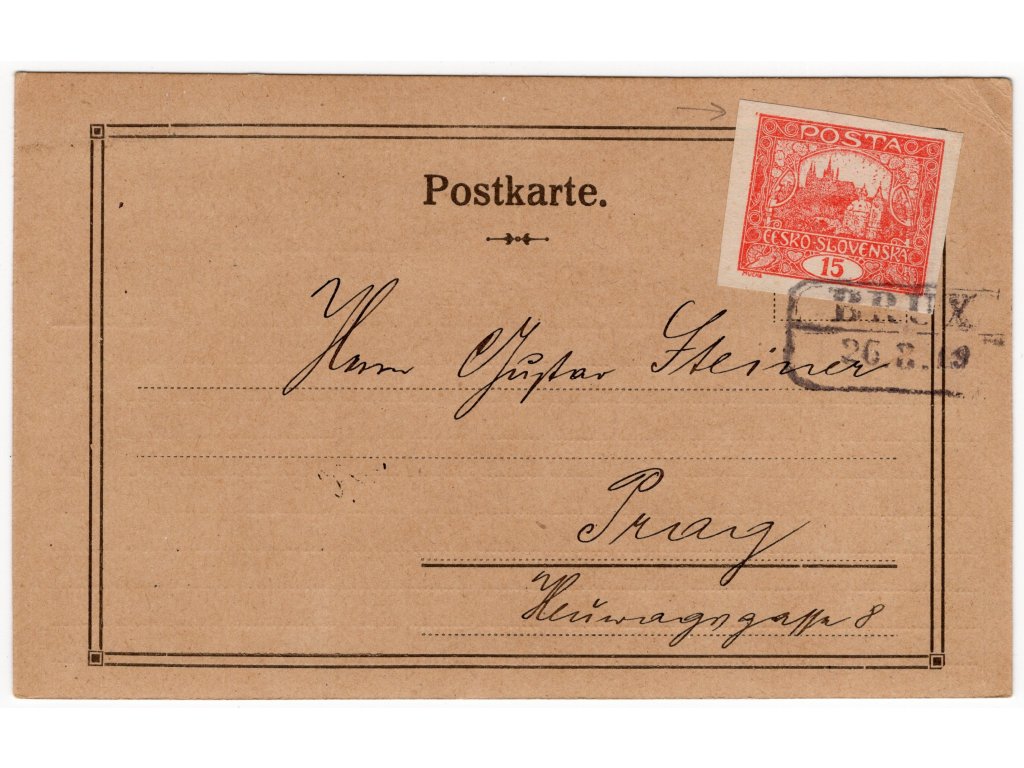 Postkarte.
POSTA
ČESKO-SLOVENSKÁ
15
MUCHA
BRÜX
26.8.19
Herrn Gustav Steiner
Prag
Heuwagsgasse 8